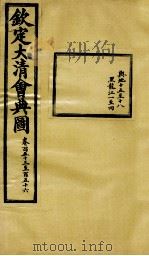 欽定大清會典圖
卷百五十三至百五十六
輿地十五至十八
黑龍江一至四